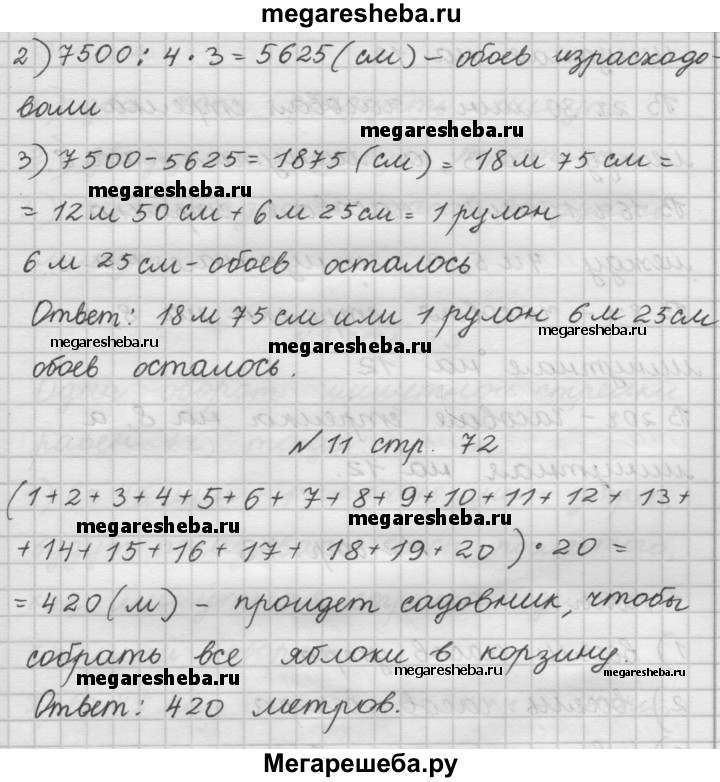 megaresheba.ru
2) 7500 : 4 · 3 = 5625 (см) – обоев израсходо-
вали
megaresheba.ru
3) 7500 – 5625 = 1875 (см) = 18 м 75 см =
megaresheba.ru
= 12 м 50 см + 6 м 25 см = 1 рулон
6 м 25 см – обоев осталось
Ответ: 18 м 75 см или 1 рулон 6 м 25 см
megaresheba.ru megaresheba.ru megaresheba.ru
обоев осталось.
№ 11 стр. 72
(1 + 2 + 3 + 4 + 5 + 6 + 7 + 8 + 9 + 10 + 11 + 12 + 13 +
megaresheba.ru megaresheba.ru
+ 14 + 15 + 16 + 17 + 18 + 19 + 20) · 20 =
= 420 (м) – пройдет садовник, чтобы
собрать все яблоки в корзину.
megaresheba.ru megaresheba.ru megaresheba.ru
Ответ: 420 метров.
Мегарешеба.ру